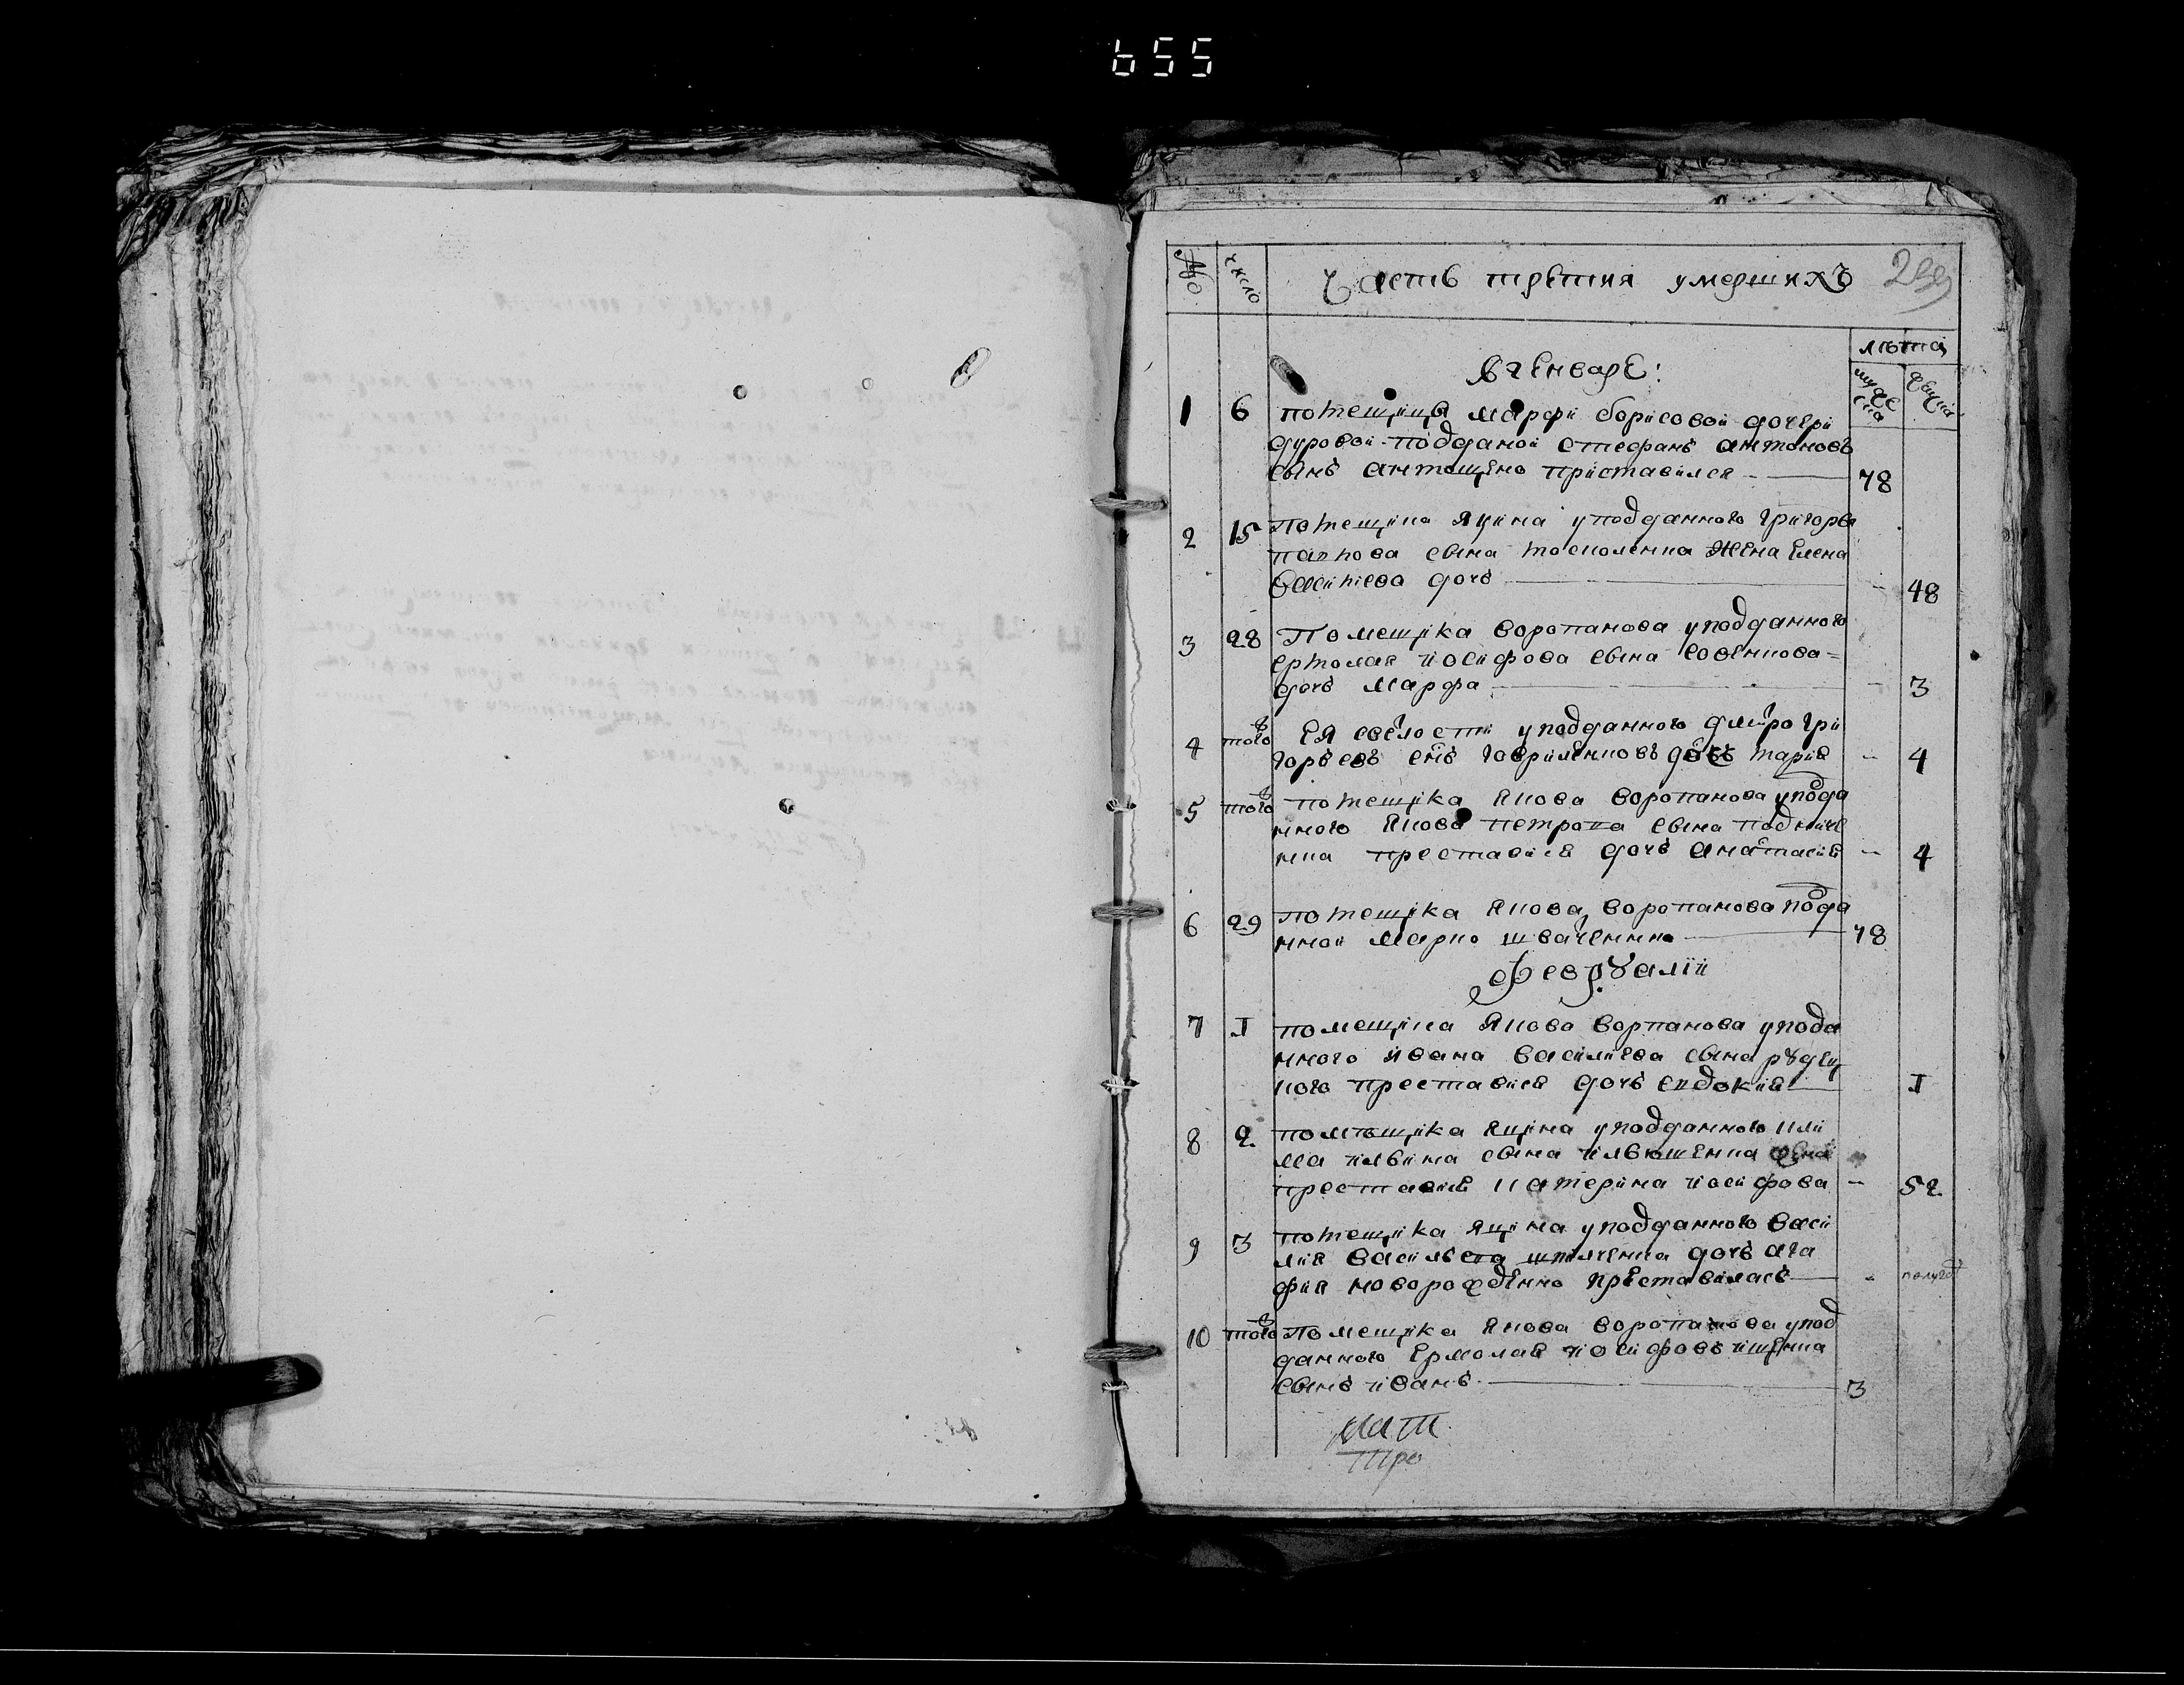 655
№ число Часть третия умершихъ 299
лѣта
вгенваре:
мужеска женска
1 6 помещицы марфи борисовой дочери
дуровой подданой стефанъ антоновъ
сынъ антощенко приставился 78
2 15 помещика яцина у подданного григорья
сына жена елена
василиева дочъ 48
3 28 Помещика воропанова у подданного
ермолая иосифова сына
дочъ марфа 3
4 того ея свѣлости у подданного дмитро гри
горъевъ снъ гавриленковъ дочъ мария 4
5 того помещика якова воропанова у подда
нного якова петрова сына
преставися дочъ анастасия 4
6 29 помещика якова воропанова подда
нной марко швачченко 78
Февруалїи
7 1 помещика якова ворпанова у подда
нного ивана василиева сына рудец
кого преставися дочъ евдокия 1
8 2 помѣщика яцина у подданного кли
ма илвина сына илвюшенка жена
преставися катерина иосифова 52
9 3 помещика яцина у подданного васи
лия василъева дочъ ага
фия новорожденно преставиласъ полугод
10 того Помещика якова воропанова у под
данного ермолая иосифовъ ищенка
сынъ иванъ 3